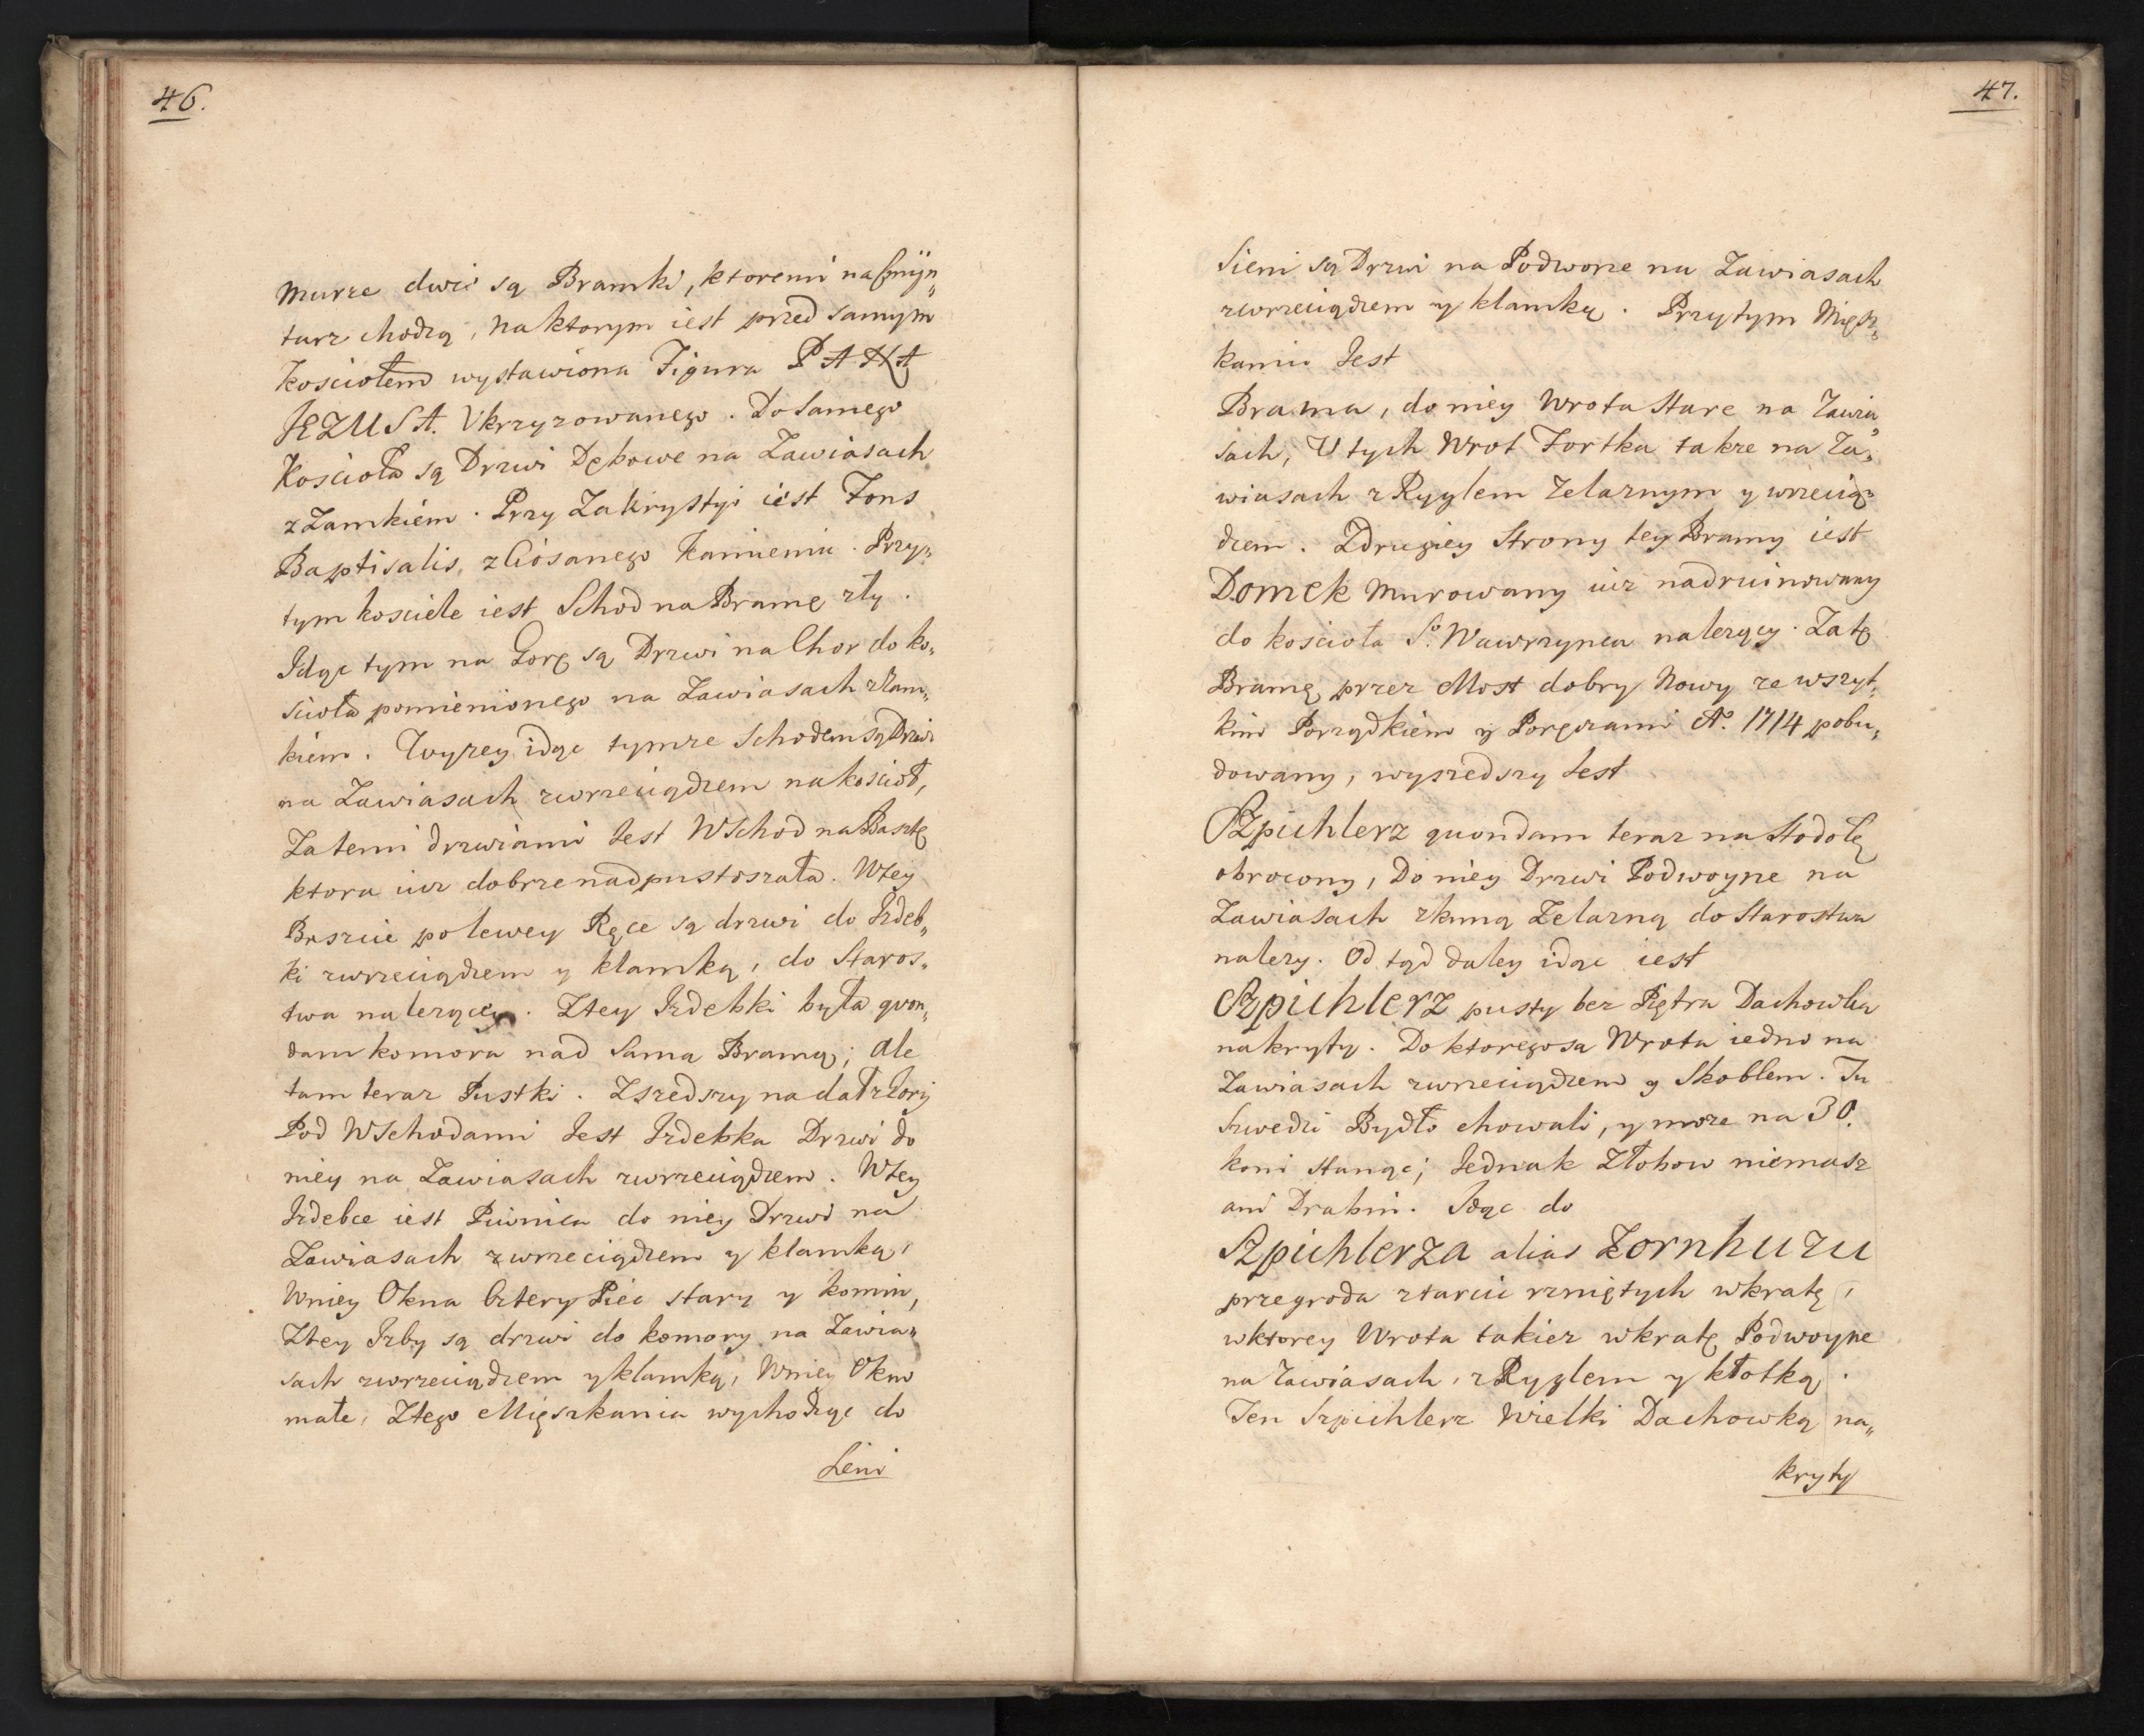 46.
murze dwie są Bramki, ktoremi na Smÿn„
tarz chodzą, na ktorym iest przed samym
Kosciołem wystawiona Figura PANA
JEZUSA. Vkrzyzowanego. Do Samego
Koscioła są Drzwi Dębowe na Zawiasach
z Zamkiem. Przy Zakrystyi iest Fons
Baptisalis, z Ciosanego Kamienia. Przy„
tym kosciele iest Schod na Bramę zły.
Idąc tym na Gorę są Drzwi na Chor do ko„
scioła pomienionego na Zawiasach z Zam„
kiem. Wyzey idąc tymze Schodem są Drzwi
na Zawiasach zwrzeciądzem na kościoł,
Za temi drzwiami Iest Wschod na Basztę
ktora iuz dobrze nadpustoszała. Wtey
Baszcie po lewey Ręce są drzwi do Izdeb„
ki zwrzeciądzem y klamką, do Staros„
twa nalezącey. Ztey Izdebki była qvon„
dam komora nad Sama Bramą; Ale
tam teraz Pustki. Zszedszy na doł z Gory
Pod Wschodami Iest Izdebka Drzwi do
niey na Zawiasach zwrzeciądzem. Wtey
Izdebce iest Piwnica do niey Drzwi na
Zawiasach zwrzeciądzem y klamką,
Wniey Okna Cztery Piec stary y komin,
Ztey Izby są drzwi do komory na Zawia„
sach zwrzeciądzem y klamką, Wniey Okno
małe, Ztego Mięszkania wychodząc do
Sieni
47.
Sieni są Drzwi na Podworze na Zawiasach
zwrzeciądzem y klamką. Przytym Mięsz„
kaniu Iest
Brama, do niey Wrota Stare na Zawia„
sach, U tych Wrot Fortka takze na Za„
wiasach z Ryglem Zelaznym y wrzecią„
dzem. Zdrugiey Strony tey Bramy iest
Domek Murowany iuz nadruinowany
do kościoła S.º Wawrzynca nalezący. Za tę
Bramę przez Most dobry Nowy ze wszyt„
kim Porządkiem y Poręczami Aº. 1714 pobu„
dowany, wyszedszy Iest
Szpichlerz quondam teraz na Stodołę
obrocony, Do niey Drzwi Podwoyne na
Zawiasach zkuną Zelazną do Starostwa
nalezy. Od tąd daley idąc iest
Szpichlerz pusty bez Piętra Dachowka
nakryty. Do ktorego są Wrota iedno na
Zawiasach zwrzeciądzem y Skoblem. Tu
Szwedzi Bydło chowali, y moze na 30.
koni stanąc; Iednak Złobow niemasz
ani Drabin. Idąc do
Szpichlerza alias Zornhuzu
przegroda ztarcic rzniętych wkratę,
wktorey Wrota takiez wkratę Podwoyne
na Zawiasach, z Ryglem y kłotką.
Ten Szpichlerz Wielki Dachowką na„
kryty